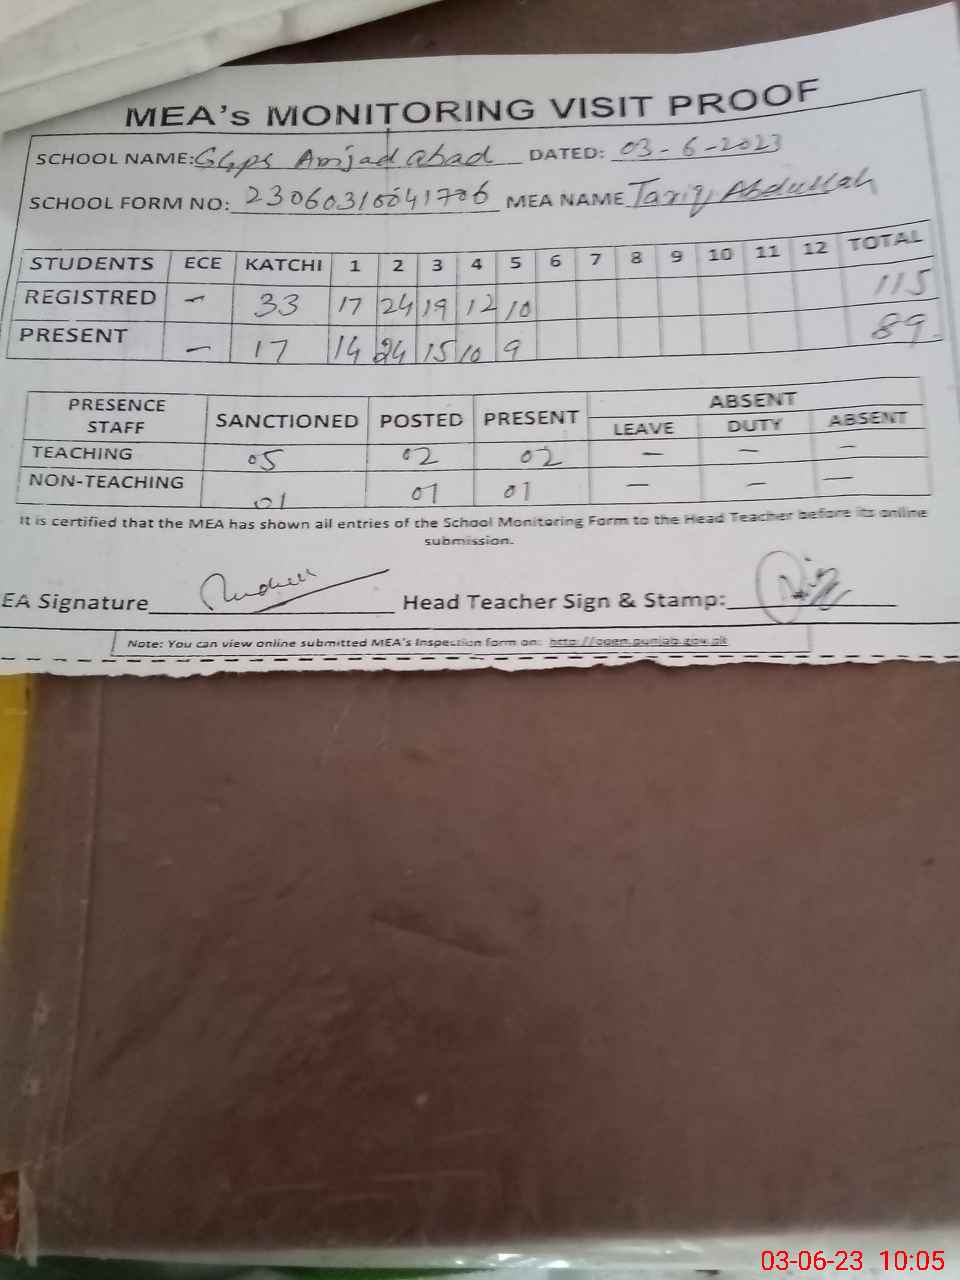 MEA's MONITORING VISIT PROOF
SCHOOL NAME: GGPS Amjad abad DATED: 03-6-2023
SCHOOL FORM NO: 23060310041706 MEA NAME Tariq Abdullah
STUDENTS ECE KATCHI 1 2 3 4 5 6 7 8 9 10 11 12 TOTAL
REGISTRED - 33 17 24 19 12 10 115
PRESENT - 17 14 24 15 10 9 89
PRESENCE STAFF SANCTIONED POSTED PRESENT ABSENT
LEAVE DUTY ABSENT
TEACHING 05 02 02 - - -
NON-TEACHING 01 01 01 - - -
It is certified that the MEA has shown all entries of the School Monitoring Form to the Head Teacher before its online
submission.
EA Signature Head Teacher Sign & Stamp:
Note: You can view online submitted MEA's Inspection form on: http://open.punjab.gov.pk
03-06-23 10:05